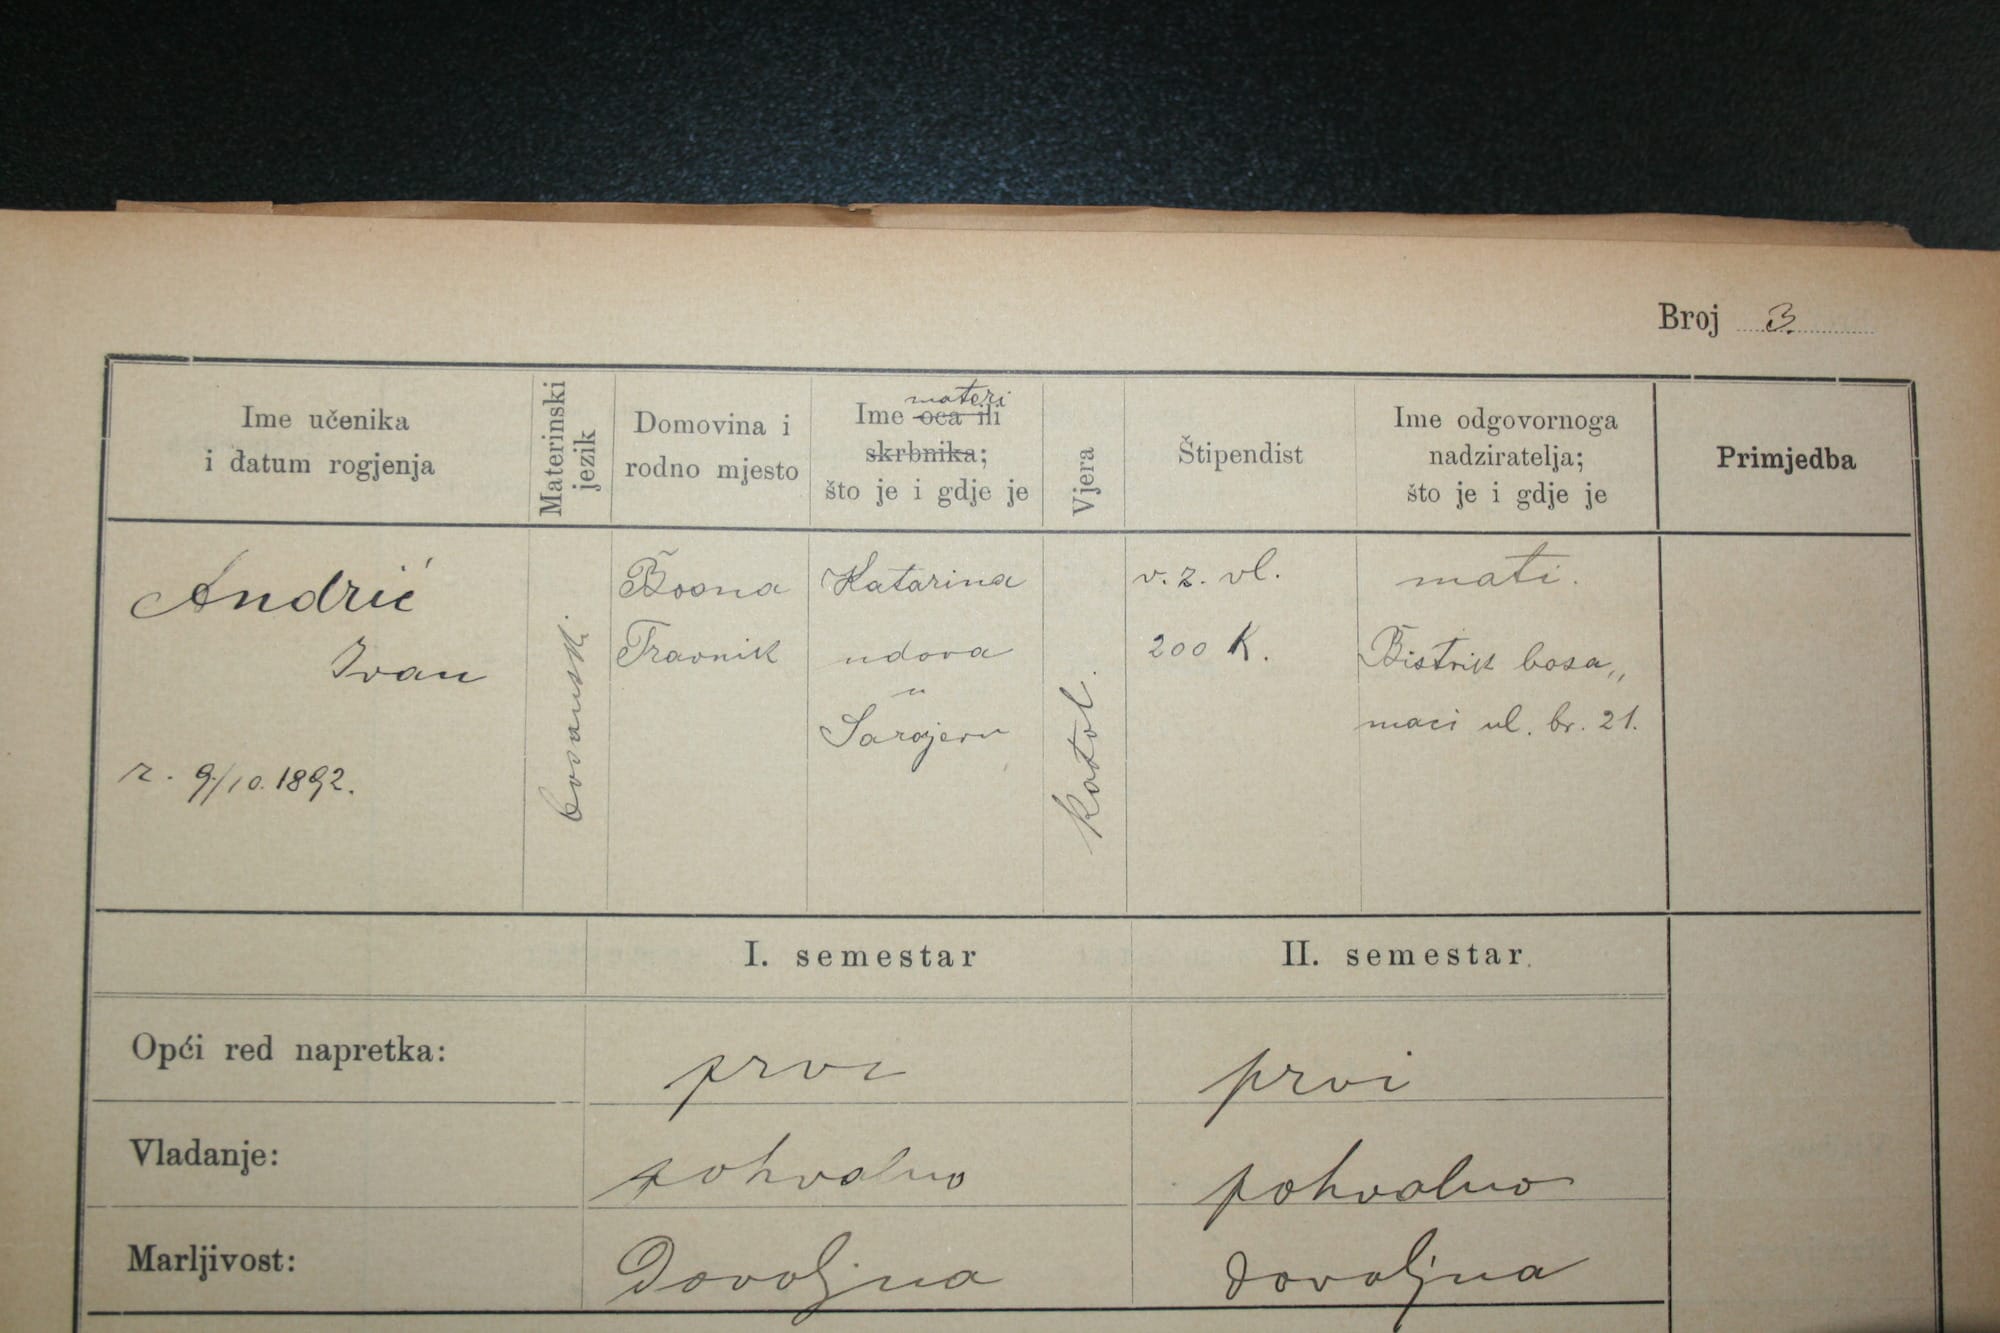 Broj 3.
Ime učenika
i datum rogjenja
Materinski
jezik
Domovina i
rodno mjesto
materi
Ime oca ili
skrbnika;
što je i gdje je
Vjera
Štipendist
Ime odgovornoga
nadziratelja;
što je i gdje je
Primjedba
Andrić
Ivan
r. 9/10. 1892.
bosanski
Bosna
Travnik
Katarina
udova
u
Sarajevu
katol.
v. z. vl.
200 K.
mati.
Bistrik basa„
maci ul. br. 21.
I. semestar
II. semestar.
Opći red napretka:
prvi
prvi
Vladanje:
pohvalno
pohvalno
Marljivost:
Dovoljna
dovoljna